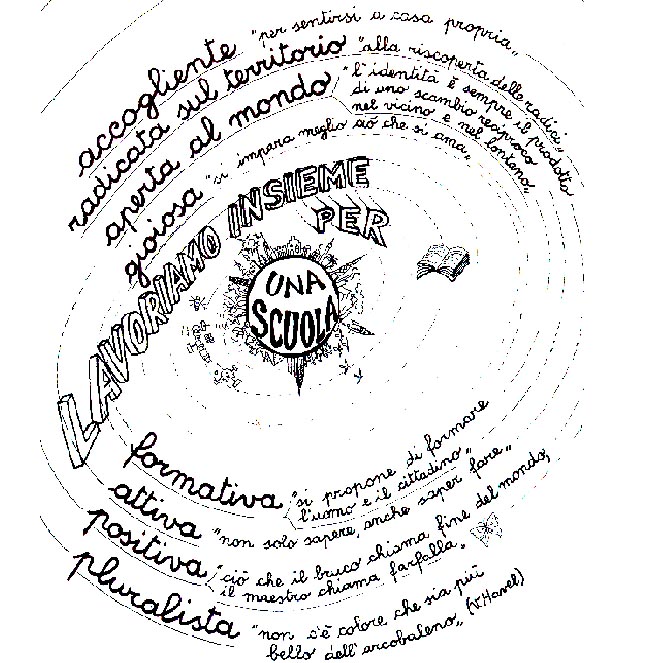 accogliente "per sentirsi a casa propria"
radicata sul territorio "alla riscoperta delle radici"
aperta al mondo "l'identità è sempre il prodotto
di uno scambio reciproco
nel vicino e nel lontano"
gioiosa "si impara meglio ciò che si ama"
LAVORIAMO INSIEME
PER
UNA
SCUOLA
formativa "si propone di formare
l'uomo e il cittadino"
attiva "non solo sapere, anche saper fare"
positiva "ciò che il bruco chiama fine del mondo,
il maestro chiama farfalla"
pluralista "non c'è colore che sia più
bello dell'arcobaleno" (V. Havel)